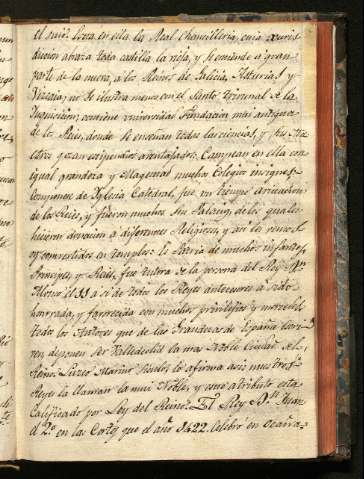 el mas? Goza en ella la Real Chancilleria, cuia xuris
dicion abaza toda castilla la vieja, y se estiende a gran
parte de la nueva, a los Reinos de Galicia, Asturias y
Vizcaia; no se ilustra menos con el Santo Tribunal de la
Inquisicion; contiene universidad Fundacion mas antigua
de los Reies, donde se enseñan todas las ciencias, y sus Ca
tedras gozan estipendios aventajados; Campean en ella con
igual grandeza y Magestad muchos Colegios insignes,
Compone de Yglesia Catedral, fue un tiempo
de los Reies, y fueron muchos sus Palacios, de los quales
hicieron donacion a diferentes Religiosos, y aun los venera
convertidos en templos: Es Patria de muchos infantes
Principes, y Reies, fue tutora de la persona del Rey Dn
Alonso el 11 a si de todos los Reyes antecesores a sido
honrrada, y favorecida con muchos privilegios y mercedes
todos los Autores que de las Grandezas de España escri
ven deponen ser Valladolid la mas Noble Ciudad de el
Reino: Lucio Marineo Siculo lo afirma asi nuestros
Reyes la llaman la mui Noble, y este atributo esta
calificado por Ley del Reino. El Rey Dn Juan
el 2º en las Cortes que el año 1422. Celebro en Ocaña